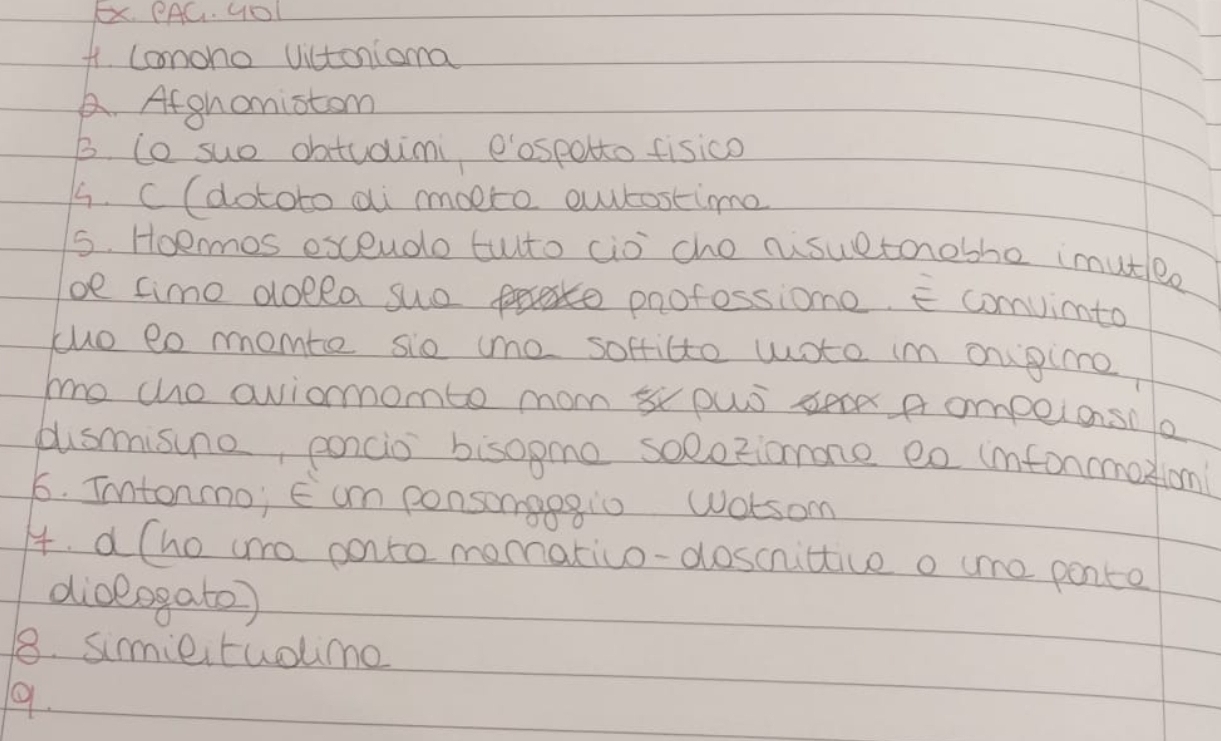 Ex. PAG. 401
1. Londra Vittoriana
2. Afghanistan
3. Le sue abtudini, l'aspetto fisico
4. C (dotato di molta autostima
5. Holmes esclude tutto ciò che risulterebbe inutile
al fine della sua professione. È convinto
che la mente sia una soffitta vuota in origine,
ma che ovviamente non può ampliarsi a
dismisura, perciò bisogna selezionare le informazioni
6. Interno; È un personaggio Watson
7. d (ha una parte narrativo-descrittiva e una parte
dialogata)
8. similitudine
9.